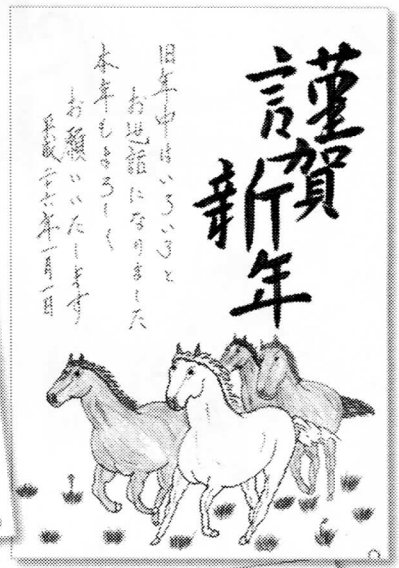 謹賀
新年
旧年中はいろいろと
お世話になりました
本年もよろしく
お願いいたします
平成二十六年一月一日